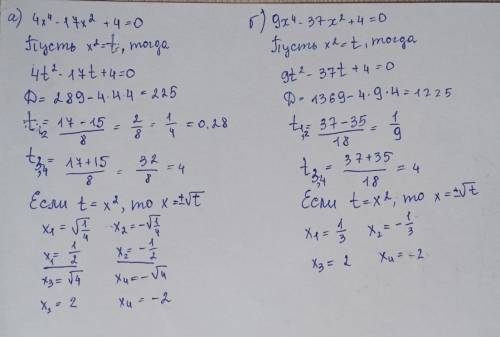 а) 4x⁴ - 17x² + 4 = 0
Пусть x² = t, тогда
4t² - 17t + 4 = 0
D = 289 - 4·4·4 = 225
t₁,₂ = (17 - 15)/8 = 2/8 = 1/4 = 0.28
t₃,₄ = (17 + 15)/8 = 32/8 = 4
Если t = x², то x = ±√t
x₁ = √(1/4) x₂ = -√(1/4)
x₁ = 1/2 x₂ = -1/2
x₃ = √4 x₄ = -√4
x₃ = 2 x₄ = -2
б) 9x⁴ - 37x² + 4 = 0
Пусть x² = t, тогда
9t² - 37t + 4 = 0
D = 1369 - 4·9·4 = 1225
t₁,₂ = (37 - 35)/18 = 1/9
t₃,₄ = (37 + 35)/18 = 4
Если t = x², то x = ±√t
x₁ = 1/3 x₂ = -1/3
x₃ = 2 x₄ = -2